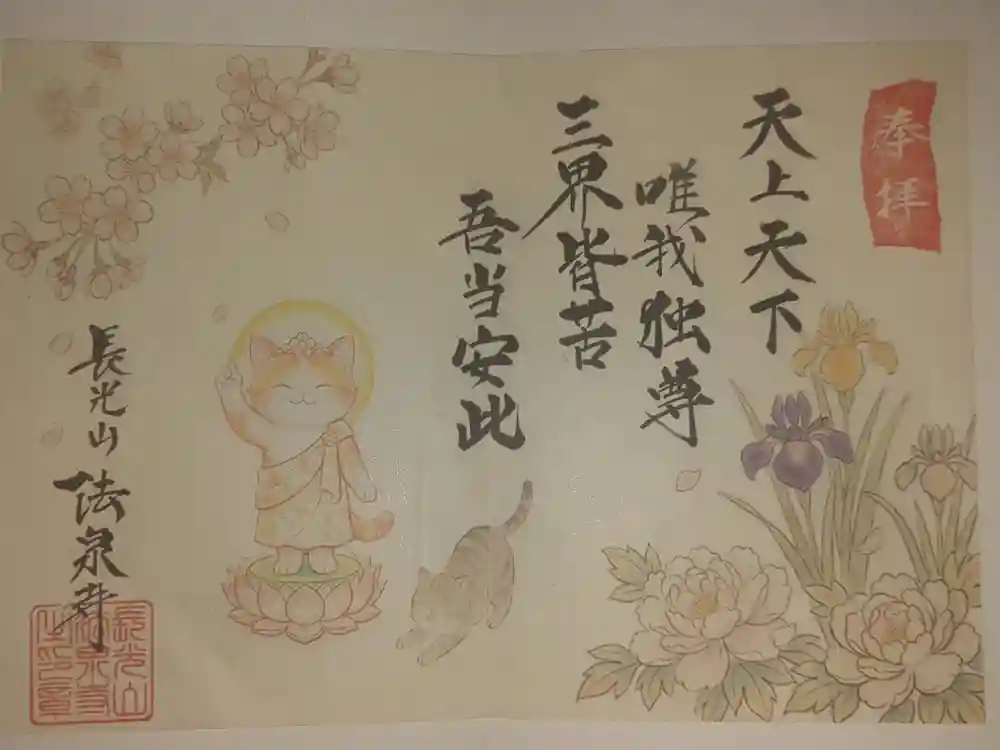 奉拝
天上天下
唯我独尊
三界皆苦
吾当安此
長光山 法泉寺
長光山
法泉寺
之印章